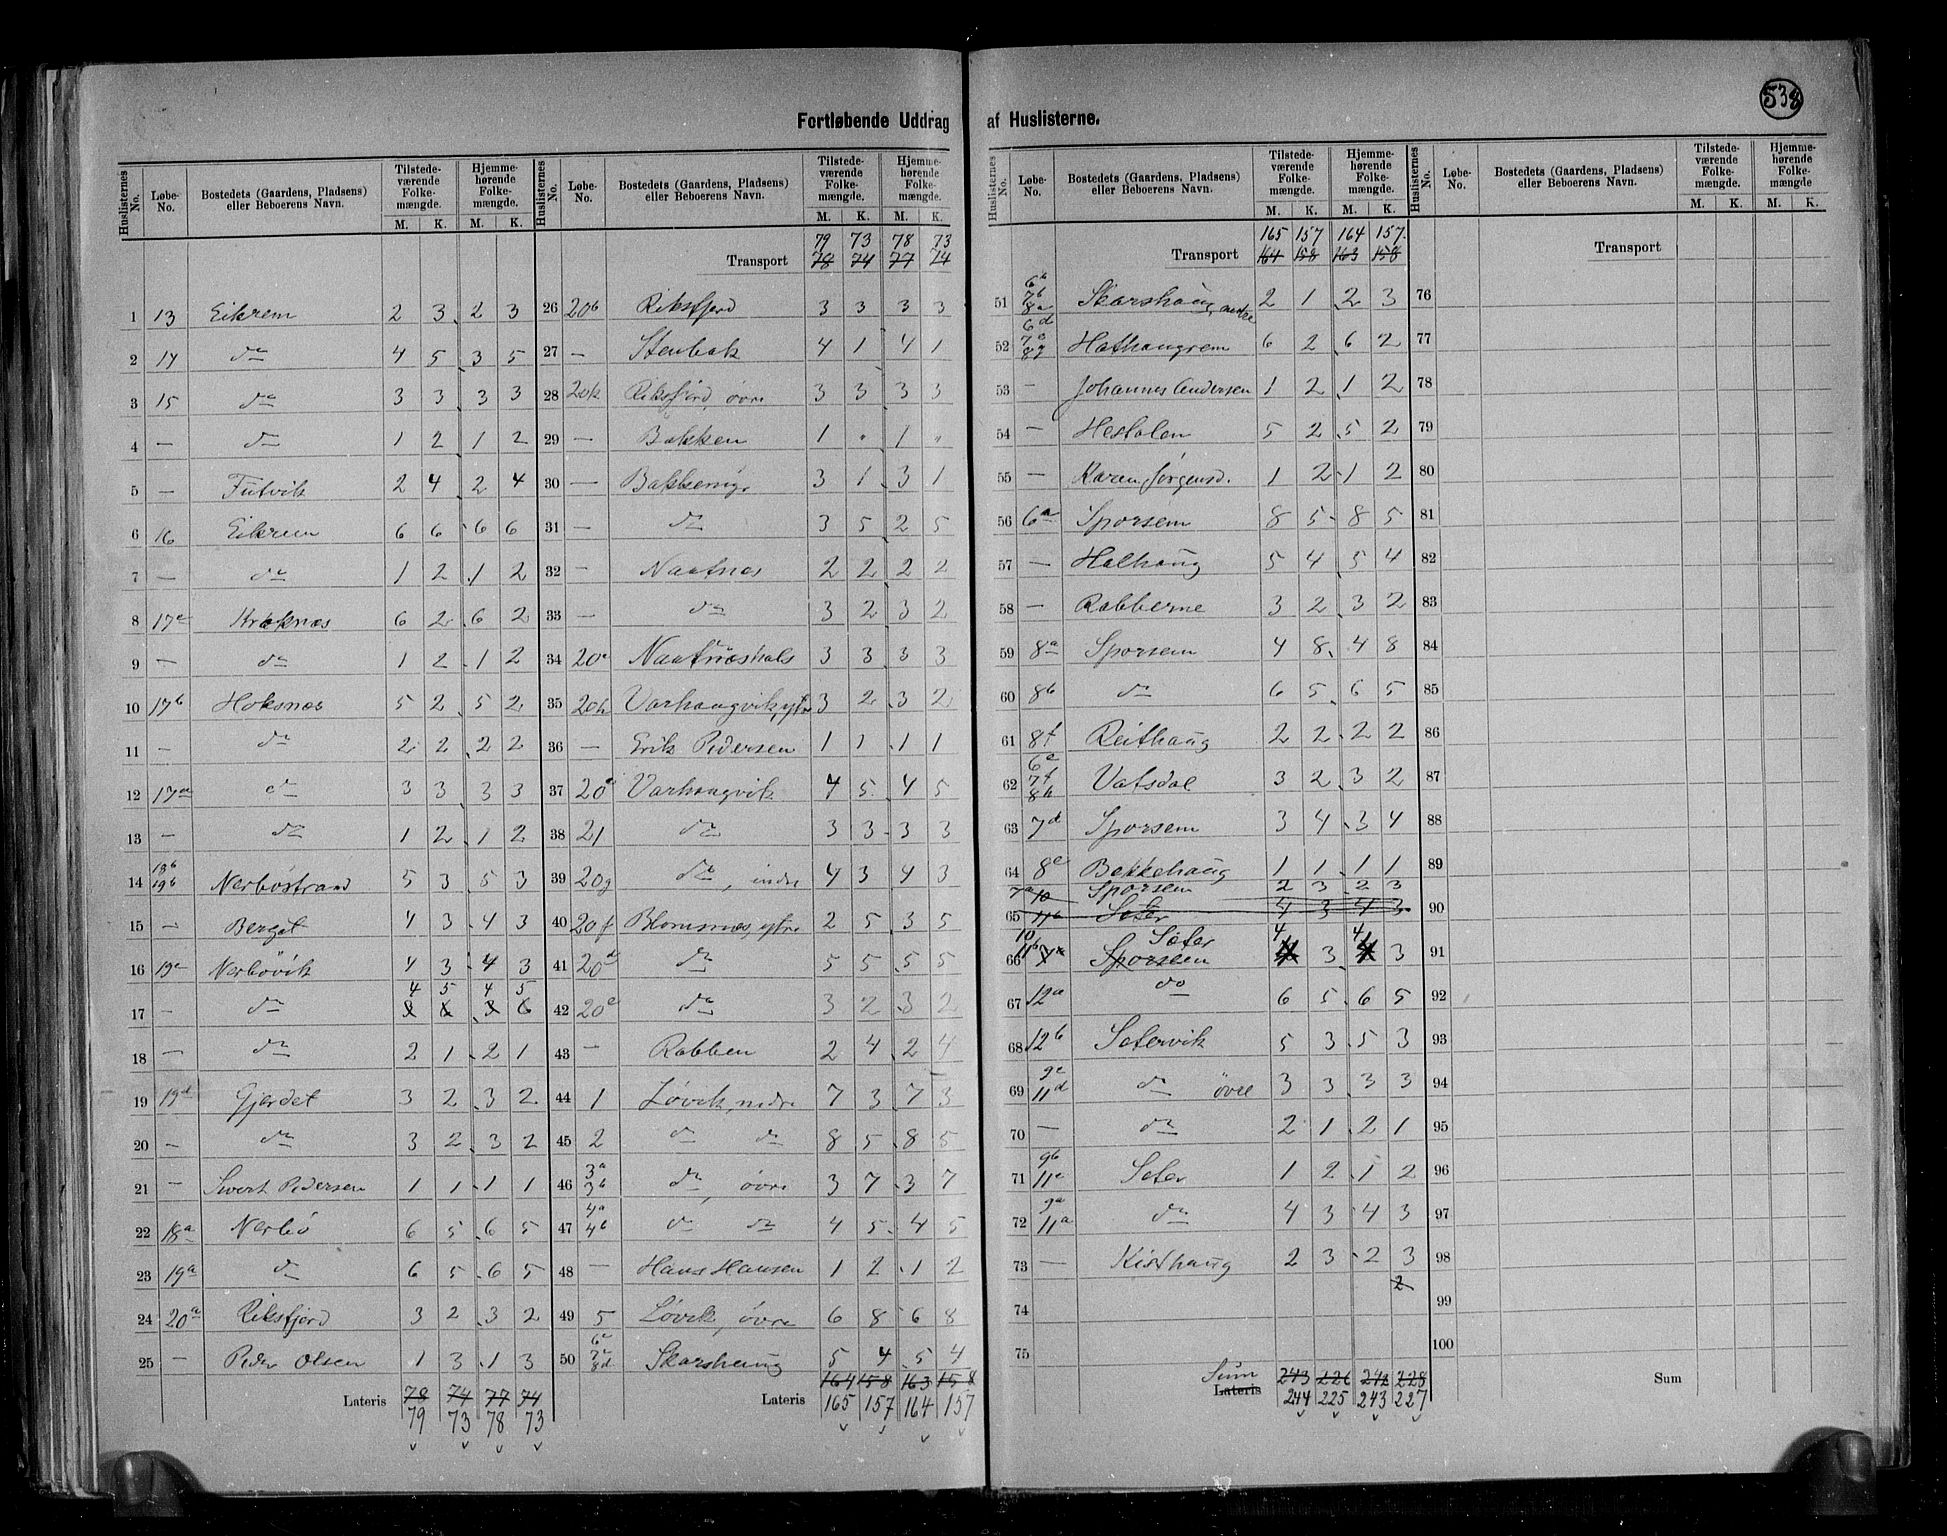 538
Fortløbende Uddrag af Huslisterne.
Huslisternes No. Løbe-No. Bostedets (Gaardens, Pladsens) eller Beboerens Navn. Tilstede-værende Folke-mængde. M. K. Hjemme-hørende Folke-mængde. M. K.
1 13 Eikrem 2 3 2 3
2 14 do 4 5 3 5
3 15 do 3 3 3 3
4 — do 1 2 1 2
5 — Futvik 2 4 2 4
6 16 Eikrem 6 6 6 6
7 — do 1 2 1 2
8 17c Kræknæs 6 2 6 2
9 — do 1 2 1 2
10 17b Hoksnæs 5 2 5 2
11 — do 2 2 2 2
12 17a do 3 3 3 3
13 — do 1 2 1 2
14 18b 19b Nerbøstrand 5 3 5 3
15 — Berget 4 3 4 3
16 19c Nerbøvik 4 3 4 3
17 — do 4 5 4 5
18 — do 2 1 2 1
19 19d Gjerdet 3 2 3 2
20 — do 3 2 3 2
21 — Sivert Pedersen 1 1 1 1
22 18a Nerbø 6 5 6 5
23 19a do 6 5 6 5
24 20a Riksfjord 3 2 3 2
25 — Peder Olsen 1 3 1 3
Lateris 78 74 77 74
79 73 78 73
Huslisternes No. Løbe-No. Bostedets (Gaardens, Pladsens) eller Beboerens Navn. Tilstede-værende Folke-mængde. M. K. Hjemme-hørende Folke-mængde. M. K.
79 73 78 73
Transport 78 74 77 74
26 20b Riksfjord 3 3 3 3
27 — Stenbak 4 1 4 1
28 20k Riksfjord, øvre 3 3 3 3
29 — Bakken 1 " 1 "
30 — Bakkemyr 3 1 3 1
31 — do 3 5 2 5
32 — Naatnæs 2 2 2 2
33 — do 3 2 3 2
34 Naatnæshals 3 3 3 3
35 20h Varhaugvik, ytre 3 2 3 2
36 — Erik Pedersen 1 1 1 1
37 Varhaugvik 4 5 4 5
38 21 do 3 3 3 3
39 20g do, indre 4 3 4 3
40 20f Blomsnæs, ytre 2 5 3 5
41 20d do 5 5 5 5
42 20e do 3 2 3 2
43 — Rabben 2 4 2 4
44 1 Løvik, nedre 7 3 7 3
45 2 do do 8 5 8 5
46 3a 3b do, øvre 3 7 3 7
47 4a 4b do do 4 5 4 5
48 — Hans Hansen 1 2 1 2
49 5 Løvik, øvre 6 8 6 8
50 6c 7c 8d Skarshaug 5 4 5 4
Lateris 164 158 163 158
165 157 164 157
Huslisternes No. Løbe-No. Bostedets (Gaardens, Pladsens) eller Beboerens Navn. Tilstede-værende Folke-mængde. M. K. Hjemme-hørende Folke-mængde. M. K.
165 157 164 157.
Transport 164 158 163 158
51 6b 7b 8c Skarshaug, nedre 2 1 2 3
52 6d 7e 8g Hathaugrem 6 2 6 2
53 — Johannes Andersen 1 2 1 2
54 — Hestolen 5 2 5 2
55 — Karen Jørgensd. 1 2 1 2
56 6a Sporsem 8 5 8 5
57 — Halhaug 5 4 5 4
58 — Rabberne 3 2 3 2
59 8a Sporsem 4 8 4 8
60 8b do 6 5 6 5
61 8f Reithaug 2 2 2 2
62 6e 7f 8h Vatsdal 3 2 3 2
63 7d Sporsem 3 4 3 4
64 8e Bekkehaug 1 1 1 1
7a 10 Sporsem 2 3 2 3
65 11b Seter 4 3 4 3
10 Seter 4 4
66 11b 7a Sporsem 3 3
67 12a do 6 5 6 5
68 12b Setervik 5 3 5 3
69 9c 11d do øvre 3 3 3 3
70 — do 2 1 2 1
71 9b 11c Seter 1 2 1 2
72 9a 11a do 4 3 4 3
73 — Kisthaug 2 3 2 3
74 2
75
Sum Lateris 243 226 242 228
244 225 243 227
Huslisternes No. Løbe-No. Bostedets (Gaardens, Pladsens) eller Beboerens Navn. Tilstede-værende Folke-mængde. M. K. Hjemme-hørende Folke-mængde M. K.
Transport
76
77
78
79
80
81
82
83
84
85
86
87
88
89
90
91
92
93
94
95
96
97
98
99
100
Sum